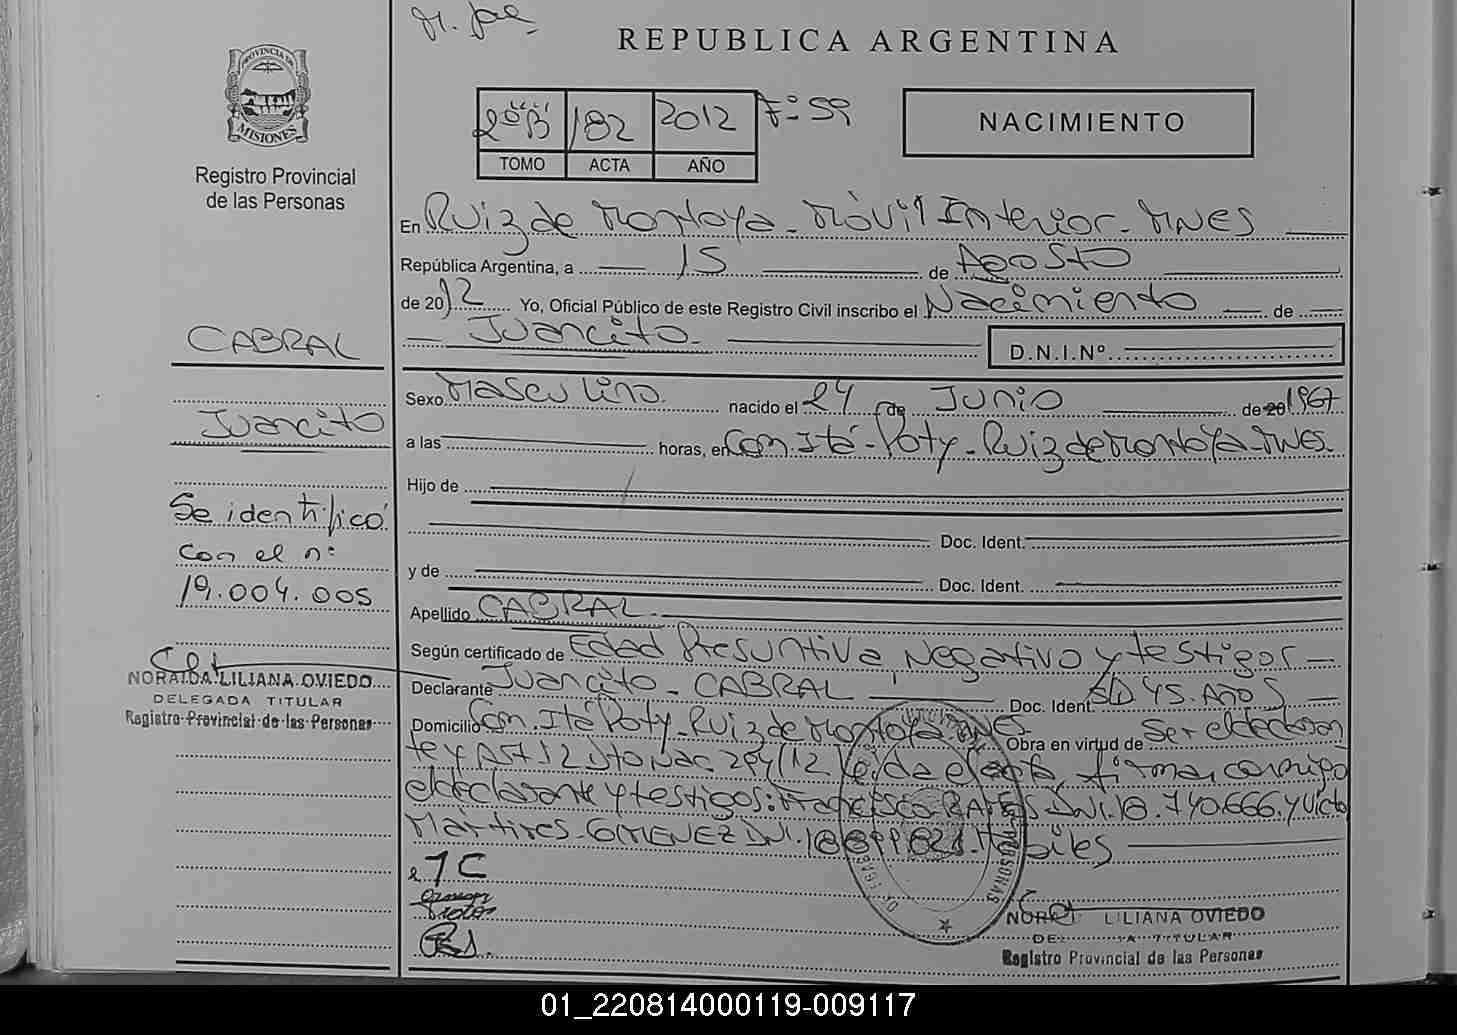 REPUBLICA ARGENTINA
PROVINCIA DE
MISIONES
Registro Provincial
de las Personas
2º"B" 182 2012 Fº 59
TOMO ACTA AÑO
NACIMIENTO
En Ruiz de Montoya - Móvil Interior - MNES
República Argentina, a 15 de Agosto
de 2012 Yo, Oficial Público de este Registro Civil inscribo el Nacimiento de
Juancito.
D.N.I.Nº
CABRAL
Juancito
Se identificó
con el nº
19.004.005
NORAIDA LILIANA OVIEDO
DELEGADA TITULAR
Registro Provincial de las Personas
Sexo Masculino. nacido el 24 de Junio de 20 1967
a las horas, en Com. Itá-Poty - Ruiz de Montoya - MNES.
Hijo de
Doc. Ident.
y de Doc. Ident.
Apellido CABRAL
Según certificado de Edad Presuntiva Negativo y testigos
Declarante Juancito - CABRAL Doc. Ident. S/D 45. Años
Domicilio Com. Itá Poty - Ruiz de Montoya MNES Obra en virtud de Ser el declaran
te y Dto Nac 294/12 Leida el acta, firma conmigo
el declarante y testigos: Francisco RAMOS DNI. 18.740.666. y Victo
Martires - GIMENEZ DNI. Hábiles
NORAIDA LILIANA OVIEDO
DELEGADA TITULAR
Registro Provincial de las Personas
01_220814000119-009117